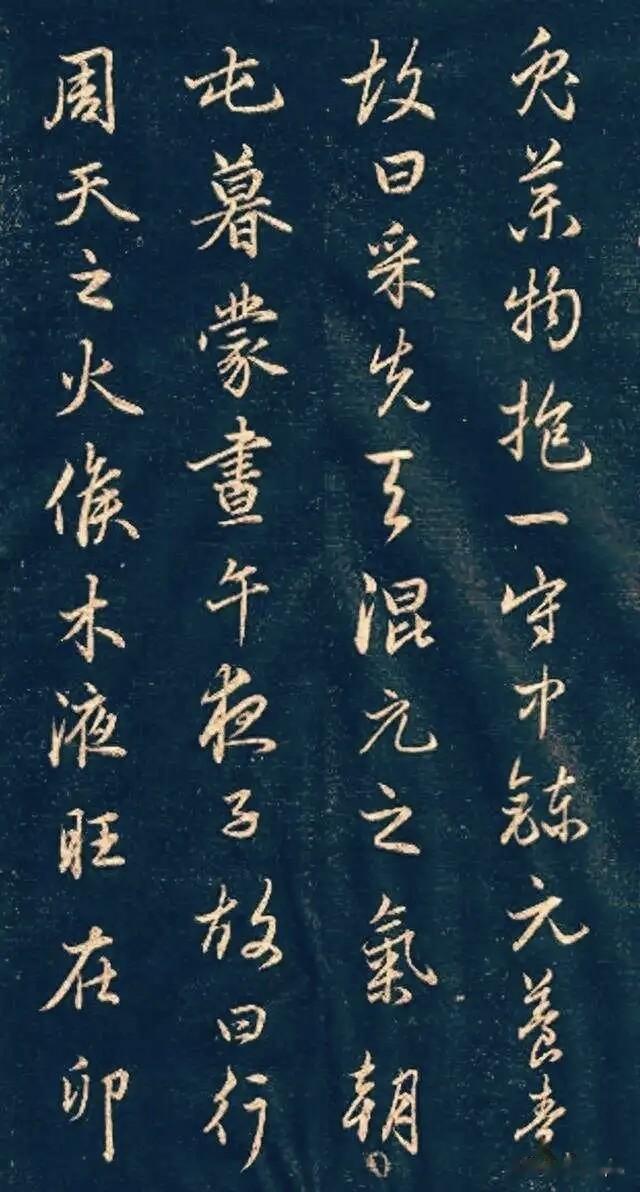 兔藥物抱一守中鍊元養素
故曰采先天混元之氣朝
屯暮蒙晝午夜子故曰行
周天之火候木液旺在卯